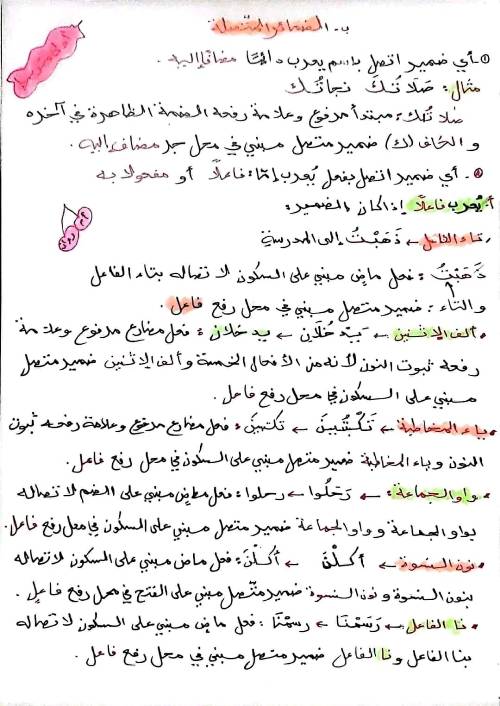 ب - الضمائر المتصلة
① - أي ضمير اتصل باسم يعرب دائمًا مضاف إليه.
مثال: صَلاتُكَ نجاتُك
صلاتُك: مبتدأ مرفوع وعلامة رفعه الضمة الظاهرة في آخره
و الكاف (ك) ضمير متصل مبني في محل جر مضاف إليه.
② - أي ضمير اتصل بفعل يُعرب إمّا: فاعلًا أو مفعولا به
أ: يُعرب فاعلًا إذا كان الضمير:
تاء الفاعل ← ذَهَبْتُ إلى المدرسة
ذَهَبْتُ: فعل ماضٍ مبني على السكون لاتصاله بتاء الفاعل
والتاء: ضمير متصل مبني في محل رفع فاعل.
ألف الاثنين ← يَدْخُلَانِ ← يدخلان: فعل مضارع مرفوع وعلامة
رفعه ثبوت النون لأنه من الأفعال الخمسة وألف الاثنين ضمير متصل
مبني على السكون في محل رفع فاعل.
ياء المخاطبة ← تَكْتُبِينَ ← تكتبين: فعل مضارع مرفوع وعلامة رفعه ثبوت
النون وياء المخاطبة ضمير متصل مبني على السكون في محل رفع فاعل.
واو الجماعة: ← رَحَلُوا ← رحلوا: فعل ماضٍ مبني على الضم لاتصاله
بواو الجماعة وواو الجماعة ضمير متصل مبني على السكون في محل رفع فاعل.
نون النسوة ← أَكَلْنَ ← أَكَلْنَ: فعل ماضٍ مبني على السكون لاتصاله
بنون النسوة ونون النسوة ضمير متصل مبني على الفتح في محل رفع فاعل.
نا الفاعل ← رَسَمْنَا ← رسمْنَا: فعل ماضٍ مبني على السكون لاتصاله
بنا الفاعل ونا الفاعل ضمير متصل مبني في محل رفع فاعل.